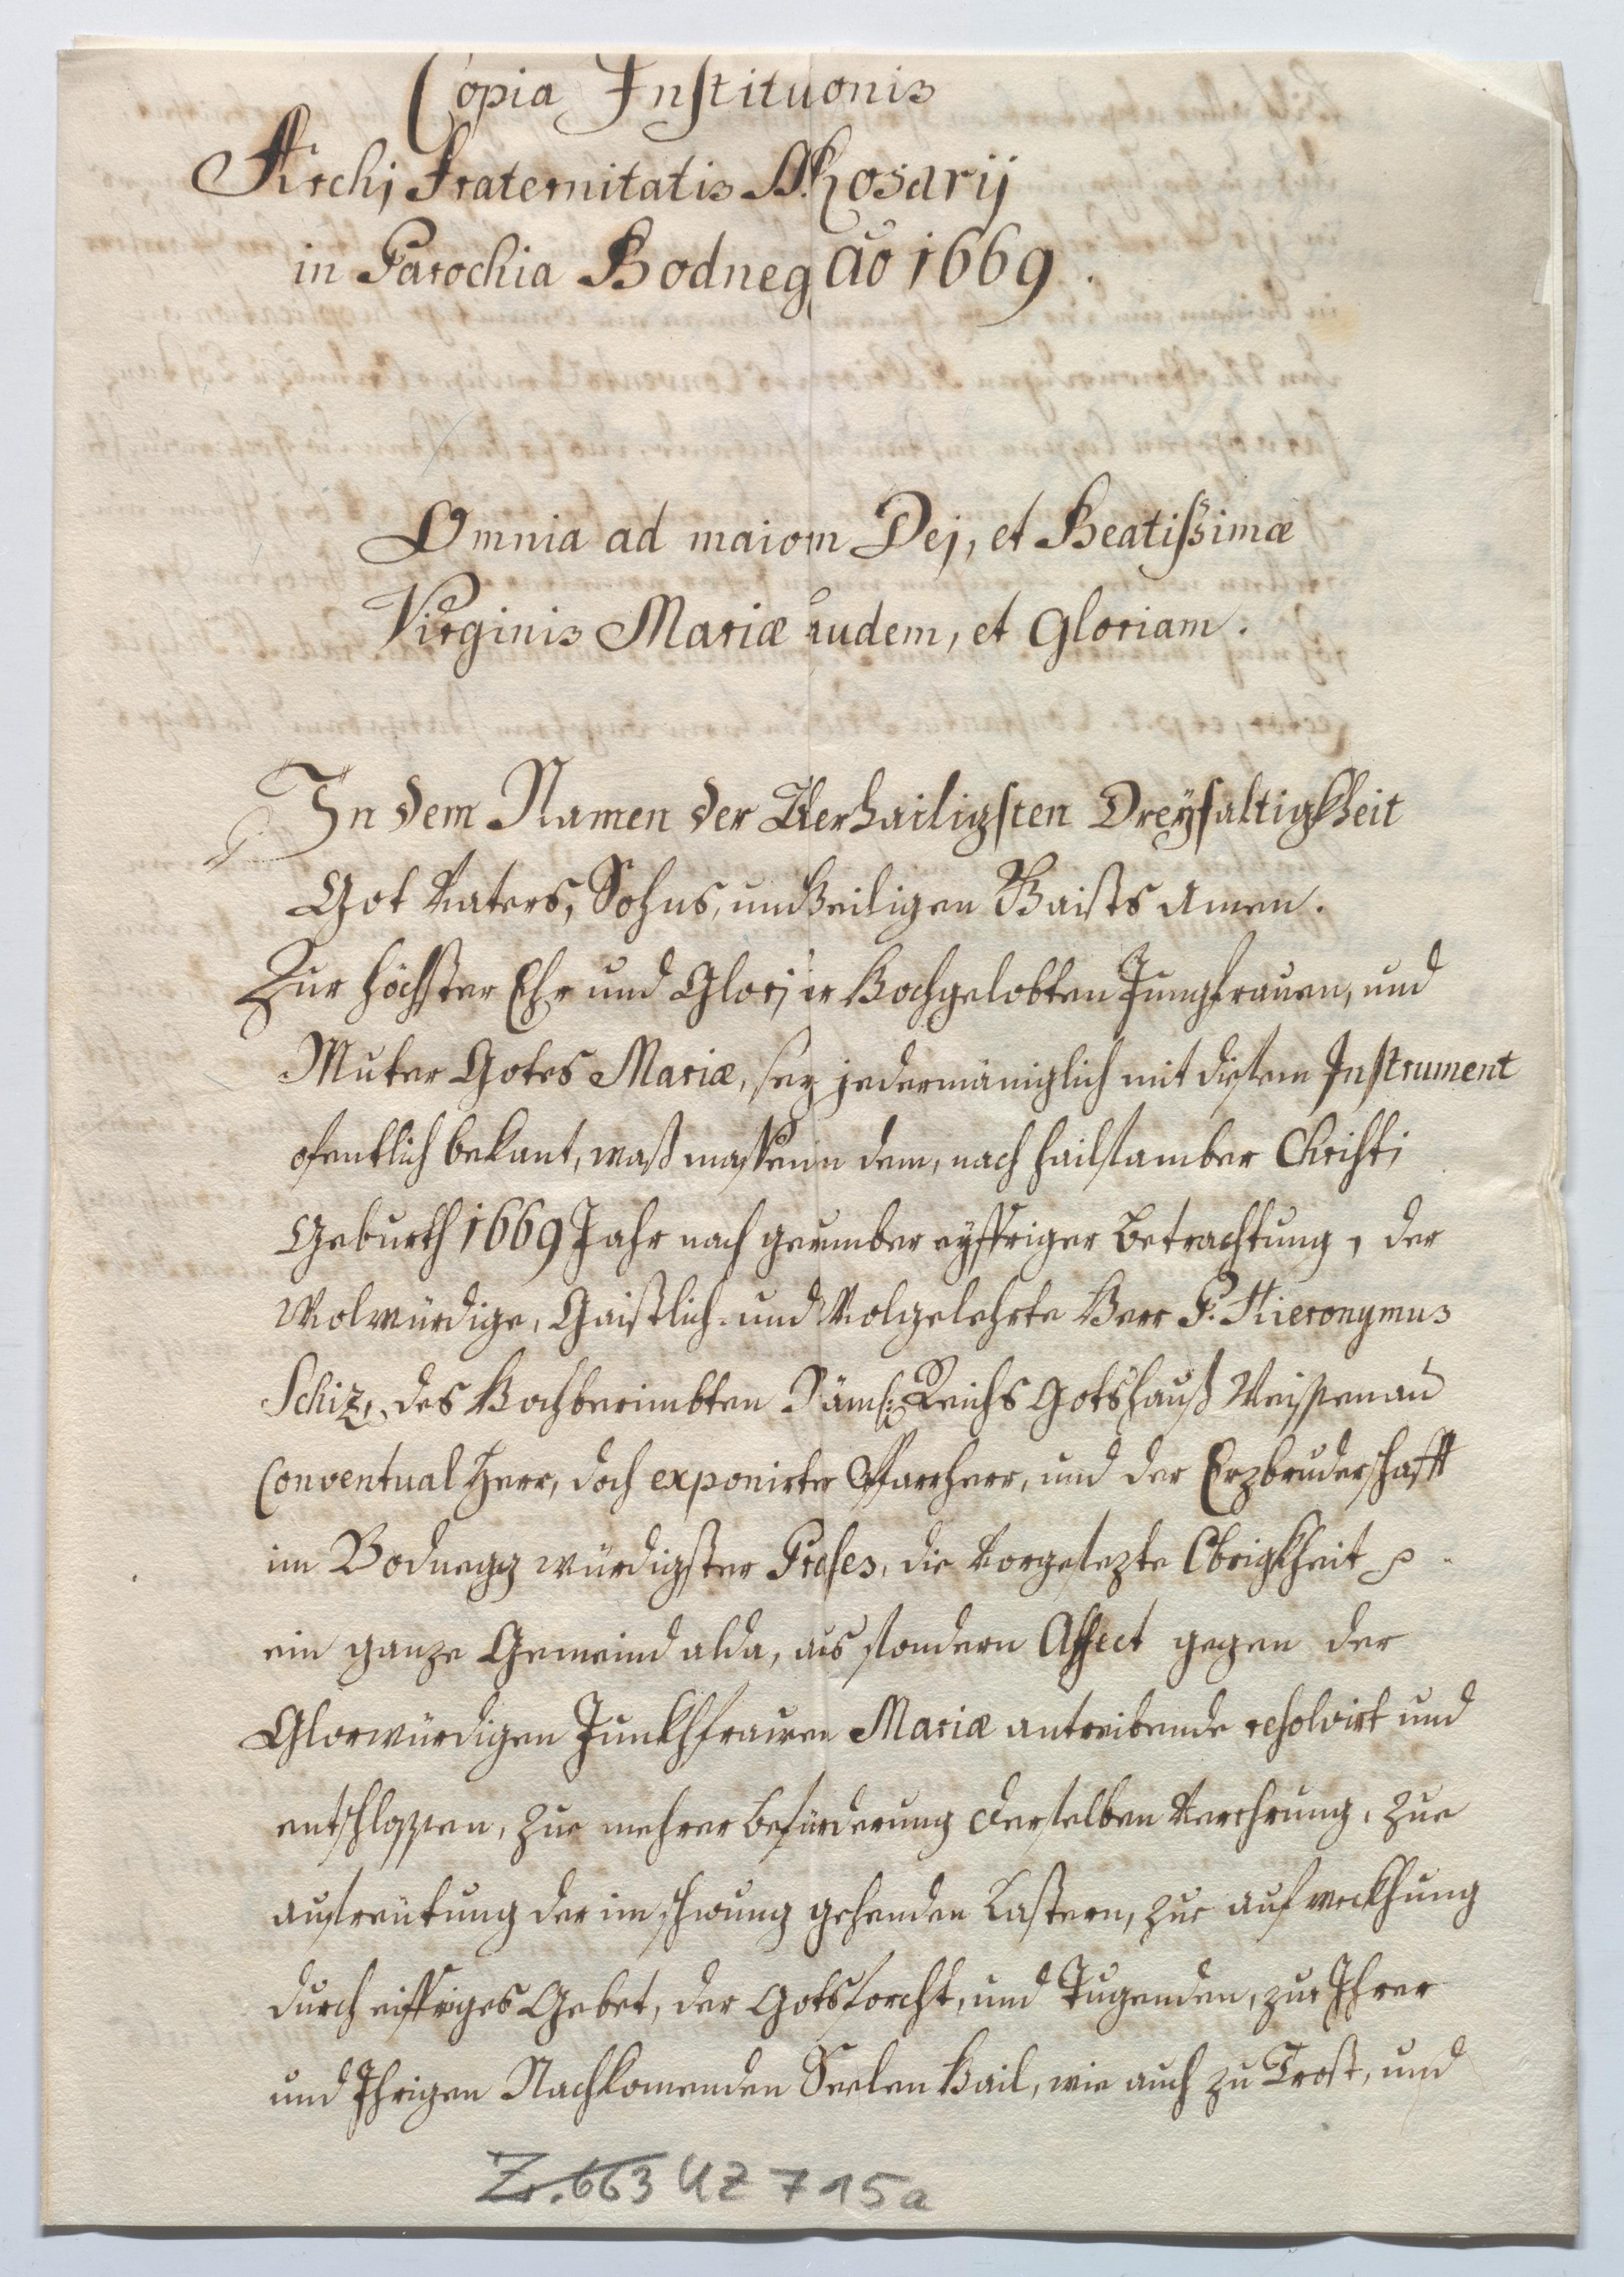 Copia Institutionis
Archi Fraternitatis S. Rosarij
in Parochia Bodneg Ao 1669.
Omnia ad maiom Dej, et Beatissimæ
Virginis Mariæ Laudem, et Gloriam.
In dem Namen der Allerhailigsten Dreyfaltigkheit
Got Vaters, Sohns, und Heiligen Gaists Amen.
Zur höchster Ehr und Glorj der Hochgelobten Jungfrauen, und
Muter Gotes Mariæ, sey jedermäniglich mit disem Instrument
ofentlich bekant, waß massen in dem, nach hailsamber Christi
Geburth 1669 Jahr nach geraumber eyffriger Betrachtung, der
Wolwürdige, Gaistlich- und Wolgelehrte Herr P. Hieronymus
Schiz, des Hochberimbten Reichs Gotshauß Weissenau
Conventual Herr, doch exponirter Pfarrherr, und der Erzbruderschafft
im Bodnegg würdigster Preses, die Vorgesezte Obrigkheit
ein ganze Gemeind alda, aus sondern Affect gegen der
Glorwürdigen Junkhfrauen Mariæ antreibende resolvirt und
entschlossen, zue mehrer befürderung derselben Verehrung, zue
ausreütung der im schwung gehenden Lastern, zue aufweckhung
durch eiffriges Gebet, der Gotsforcht, und Tugenden, zue Ihrer
und Ihrigen Nachkomenden Seelen Hail, wie auch zu Trost, und
Z. 663 UZ 715a